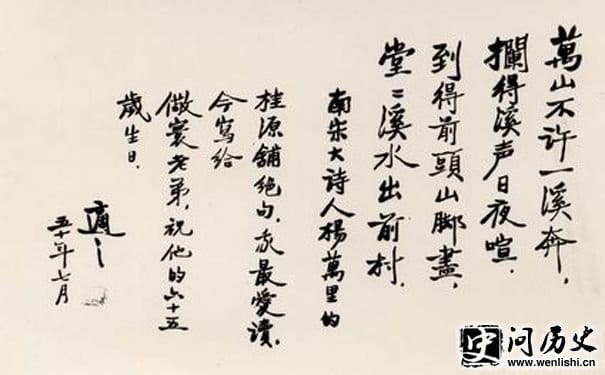 萬山不許一溪奔，
攔得溪声日夜喧．
到得前頭山脚盡，
堂〻溪水出前村．
南宋大詩人楊萬里的
桂源舖绝句，我最愛讀．
今寫给
儆寰老弟，祝他的六十五
歲生日．
適之
五十年七月
史 问历史
www.wenlishi.cn